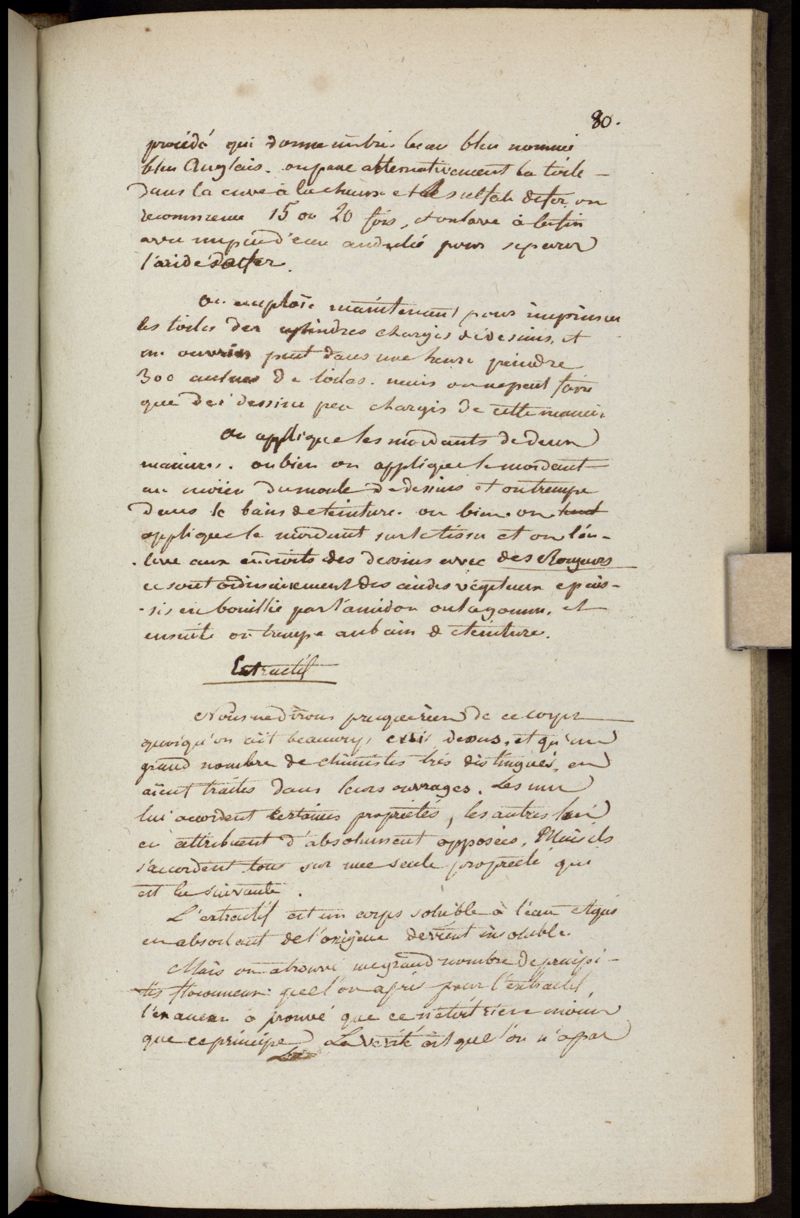 80.
procédé qui donne un très beau bleu nommé
bleu Anglais. on passe alternativement la toile
dans la cuve à la chaux et le sulfate de fer, on
recommence 15 ou 20 fois, et on lave à la fin
avec un peu d'eau acidulée pour separer
l'oxide de fer.
On emploie maintenant pour imprimer
les toiles des cylindres chargés de dessins, et
un ouvrier peut dans une heure peindre
300 aulnes de toiles. mais on ne peut faire
que des dessins peu chargés de cette manière.
On applique les mordants de deux
manieres. ou bien on applique le mordant
au moien du moule de dessins et on trempe
dans le bain de teinture. ou bien on
applique le mordant sur le tissu et on l'en-
leve aux endroits des dessins avec des Rongeurs
ce sont ordinairement des acides végétaux épais-
sis en bouillie par l'amidon ou la gomme, et
ensuite on trempe au bain de teinture.
Extractif
Nous ne dirons presque rien de ce corps
quoiqu'on ait beaucoup écrit dessus, et qu'un
grand nombre de chimistes très distingués, en
aient traités dans leurs ouvrages. Les uns
lui accordent certaines propriétés, les autres lui
en attribuent d'absolument opposées. Mais ils
s'accordent tous sur une seule propriété qui
est la suivante.
L'extractif est un corps soluble à l'eau et qui
en absorbant de l'oxigène devient insoluble.
Mais on a trouvé un grand nombre de précipi-
tés floconneux que l'on a pris pour l'extractif,
l'examen a prouvé que ce n'était rien moins
que ce principe. La verité est que l'on n'a pas